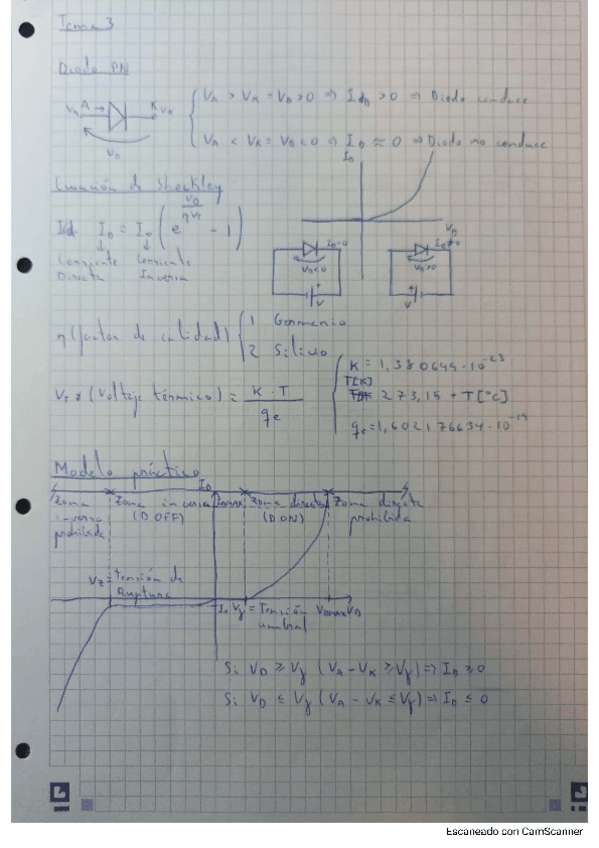 Tema 3
Diodo PN
VA A → K VK
VD
VA > VK = VD > 0 ⇒ ID > 0 ⇒ Diodo conduce
VA < VK = VD < 0 ⇒ ID ≈ 0 ⇒ Diodo no conduce
ID
VD
Ecuación de Shockley
ID = I0 (e^(VD/ηVT) - 1)
Corriente Corriente
Directa Inversa
ID=0
VD<0
V
ID≠0
VD>0
V
η (factor de calidad) { 1 Germanio
2 Silicio
VT = (Voltaje térmico) = K · T / qe
K = 1,380644 · 10^-23
T[K]
273,15 + T[°C]
qe = 1,602176634 · 10^-19
Modelo práctico
ID
Zona inversa prohibida
Zona inversa (D OFF)
IDmax
Zona directa (D ON)
Zona directa prohibida
VZ = Tensión de Ruptura
Vγ = Tensión umbral
VDmax VD
Si VD ≥ Vγ (VA - VK ≥ Vγ) ⇒ ID ≥ 0
Si VD ≤ Vγ (VA - VK ≤ Vγ) ⇒ ID ≤ 0
Escaneado con CamScanner